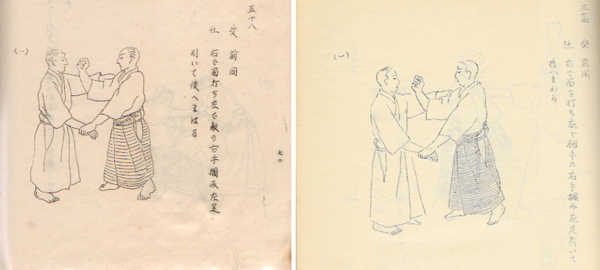 五十八
受 前同
仕 右で面打ち左で敵の右手掴み左足
引いて後へまはる
(一)
七〇
受 前同
仕 右で面を打ち左で相手の右手掴み左足引いて
後へまわる
(一)